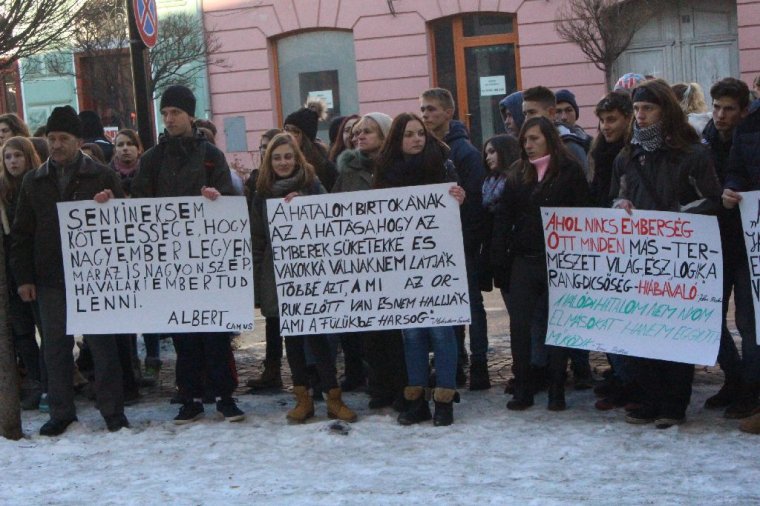 SENKINEK SEM
KÖTELESSÉGE, HOGY
NAGY EMBER LEGYEN
MÁR AZ IS NAGYON SZÉP,
HA VALAKI EMBER TUD
LENNI.
ALBERT CAMUS
A HATALOM BIRTOKÁNAK
AZ A HATÁSA HOGY AZ
EMBEREK SÜKETEKKÉ ÉS
VAKOKKÁ VÁLNAK NEM LÁTJÁK
TÖBBÉ AZT, AMI AZ OR-
RUK ELŐTT VAN ÉS NEM HALLJÁK
AMI A FÜLÜKBE HARSOG"
"AHOL NINCS EMBERSÉG
OTT MINDEN MÁS - TER-
MÉSZET VILÁG ÉSZ LOGIKA
RANG DICSŐSÉG - HIÁBAVALÓ
A VALÓDI HATALOM NEM NYOM
EL MÁSOKAT HANEM